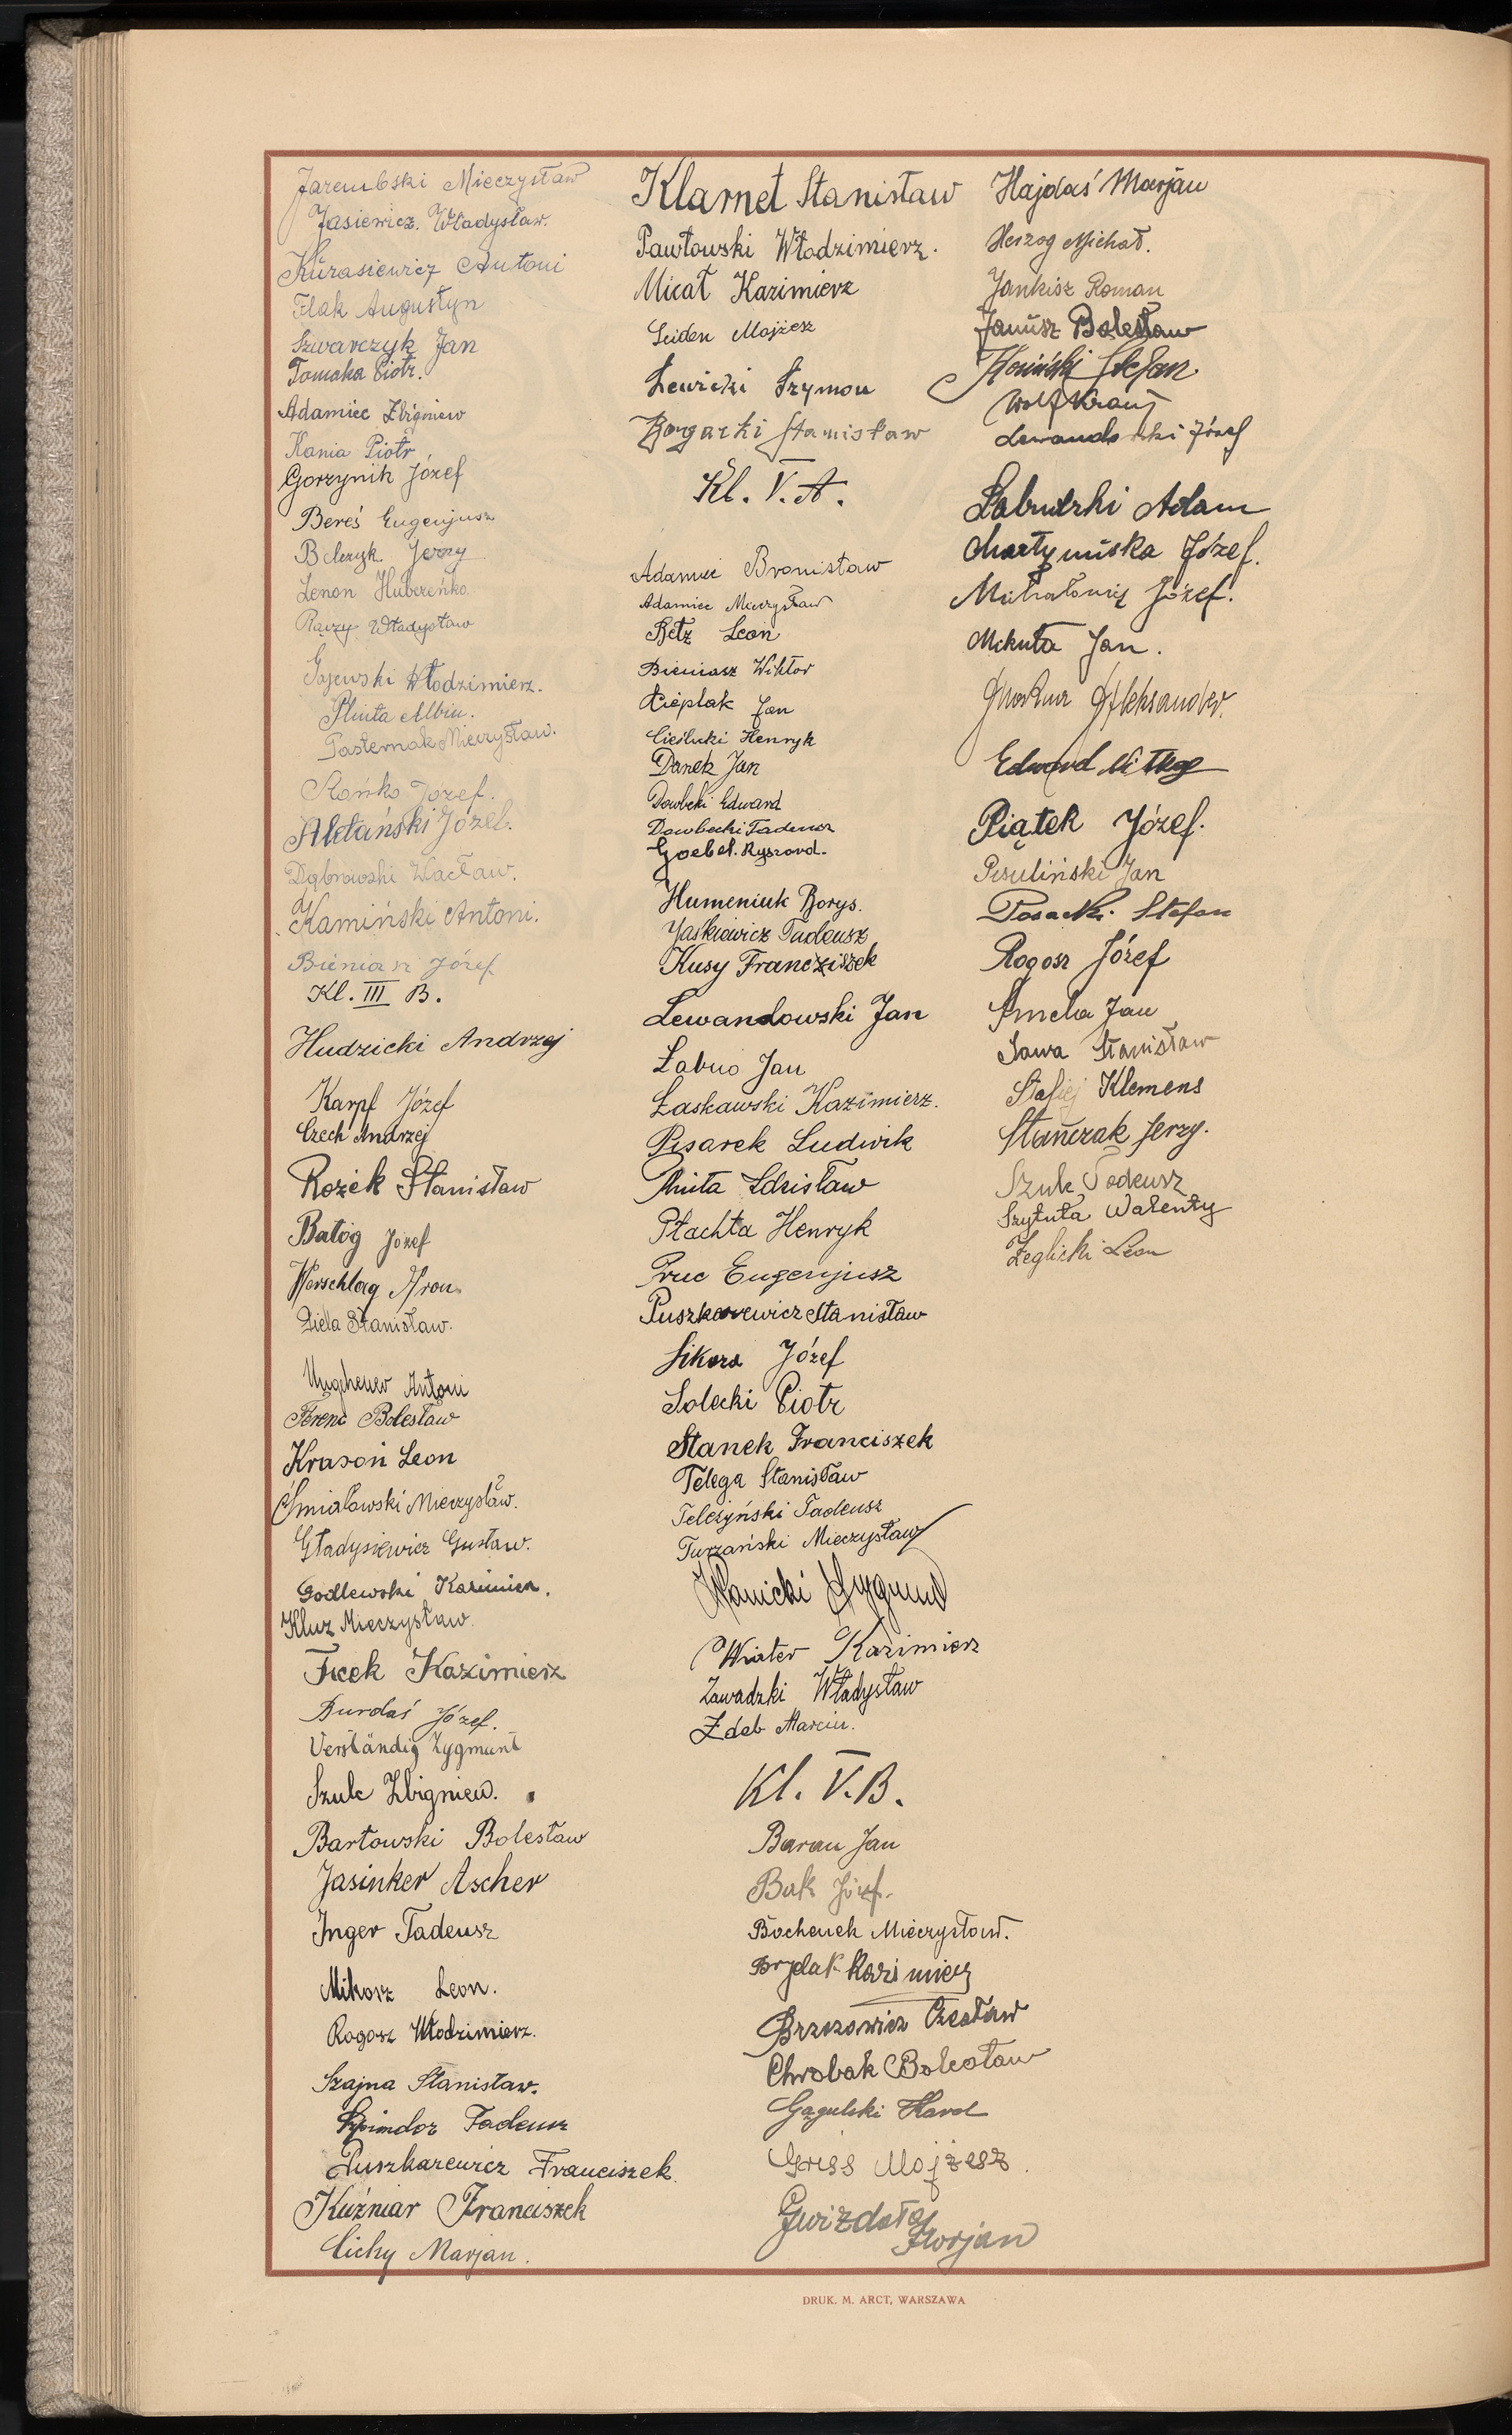 Jarembski Mieczysław
Jasiewicz. Władysław.
Kurasiewicz Antoni
Flak Augustyn
Szwarczyk Jan
Tomaka Piotr.
Adamiec Zbigniew
Kania Piotr
Gorzynik Józef
Bereś Eugenjusz
Jerzy
Lenon Hubzeńko
Rączy Władysław
Gajewski Włodzimierz.
Pluta Albin.
Pasternak Mieczysław.
Stońko Jozef.
Józef.
Dąbrowski Wacław.
Kamiński Antoni.
Bieniasz Józef
Kl. III B.
Hudzicki Andrzej
Karpf Józef
Czech Andrzej
Rożek Stanisław
Batóg Józef
Herschlag Aron
Ziela Stanisław.
Ungeheuer Antoni
Ferenc Bolesław
Krasoń Leon
Śmiałowski Mieczysław.
Gładysiewicz Gustaw.
Godlewski Kazimierz.
Kluz Mieczysław
Ficek Kazimierz
Burdaś Józef.
Verständig Zygmunt
Szulc Zbigniew.
Bartowski Bolesław
Jasinker Ascher
Inger Tadeusz
Mikosz Leon.
Rogosz Włodzimierz.
Szajna Stanisław.
Szpindor Tadeusz
Puszkarewicz Franciszek
Kuźniar Franciszek
Cichy Marjan.
Klarnet Stanisław
Pawłowski Włodzimierz.
Micał Kazimierz
Seiden Mojżesz
Lewicki Szymon
Stanisław
Kl. V. A.
Adamiec Bronisław
Adamiec Mieczysław
Betz Leon
Bieniasz Wiktor
Cieplak Jan
Cieślicki Henryk
Danek Jan
Dowbeki Edward
Dowbecki Tadeusz
Goebel. Ryszard.
Humeniuk Borys.
Jaśkiewicz Tadeusz
Kusy Franciszek
Lewandowski Jan
Łabno Jan
Łaskawski Kazimierz.
Pisarek Ludwik
Pluta Zdzisław
Płachta Henryk
Pruc Eugenjusz
Puszkarewicz Stanisław
Sikora Józef
Solecki Piotr
Stanek Franciszek
Telega Stanisław
Teleżyński Tadeusz
Turzański Mieczysław
Wanicki Zygmunt
Wiater Kazimierz
Zawadzki Władysław
Zdeb Marcin.
Kl. V. B.
Baran Jan
Bąk Józef.
Bochenek Mieczysław.
Brydak Kazimierz
Brzozowicz Czesław
Chrobak Bolesław
Gągulski Karol
Griss Mojżesz
Gwizdała
Florjan
Hajdaś Marjan
Herzog Michał.
Jankisz Roman
Janusz Bolesław
Stefan
Wolf Kranz
Lewandowski Józef
Łabudzki Adam
Martymiska Józef.
Józef.
Mikuła Jan.
Aleksander.
Edward
Piątek Józef.
Pisuliński Jan
Posacki Stefan
Rogosz Józef
Jan
Sawa Stanisław
Stafiej Klemens
Stańczak Jerzy.
Szulc Tadeusz
Szytuła Walenty
Żeglicki Leon
DRUK. M. ARCT, WARSZAWA